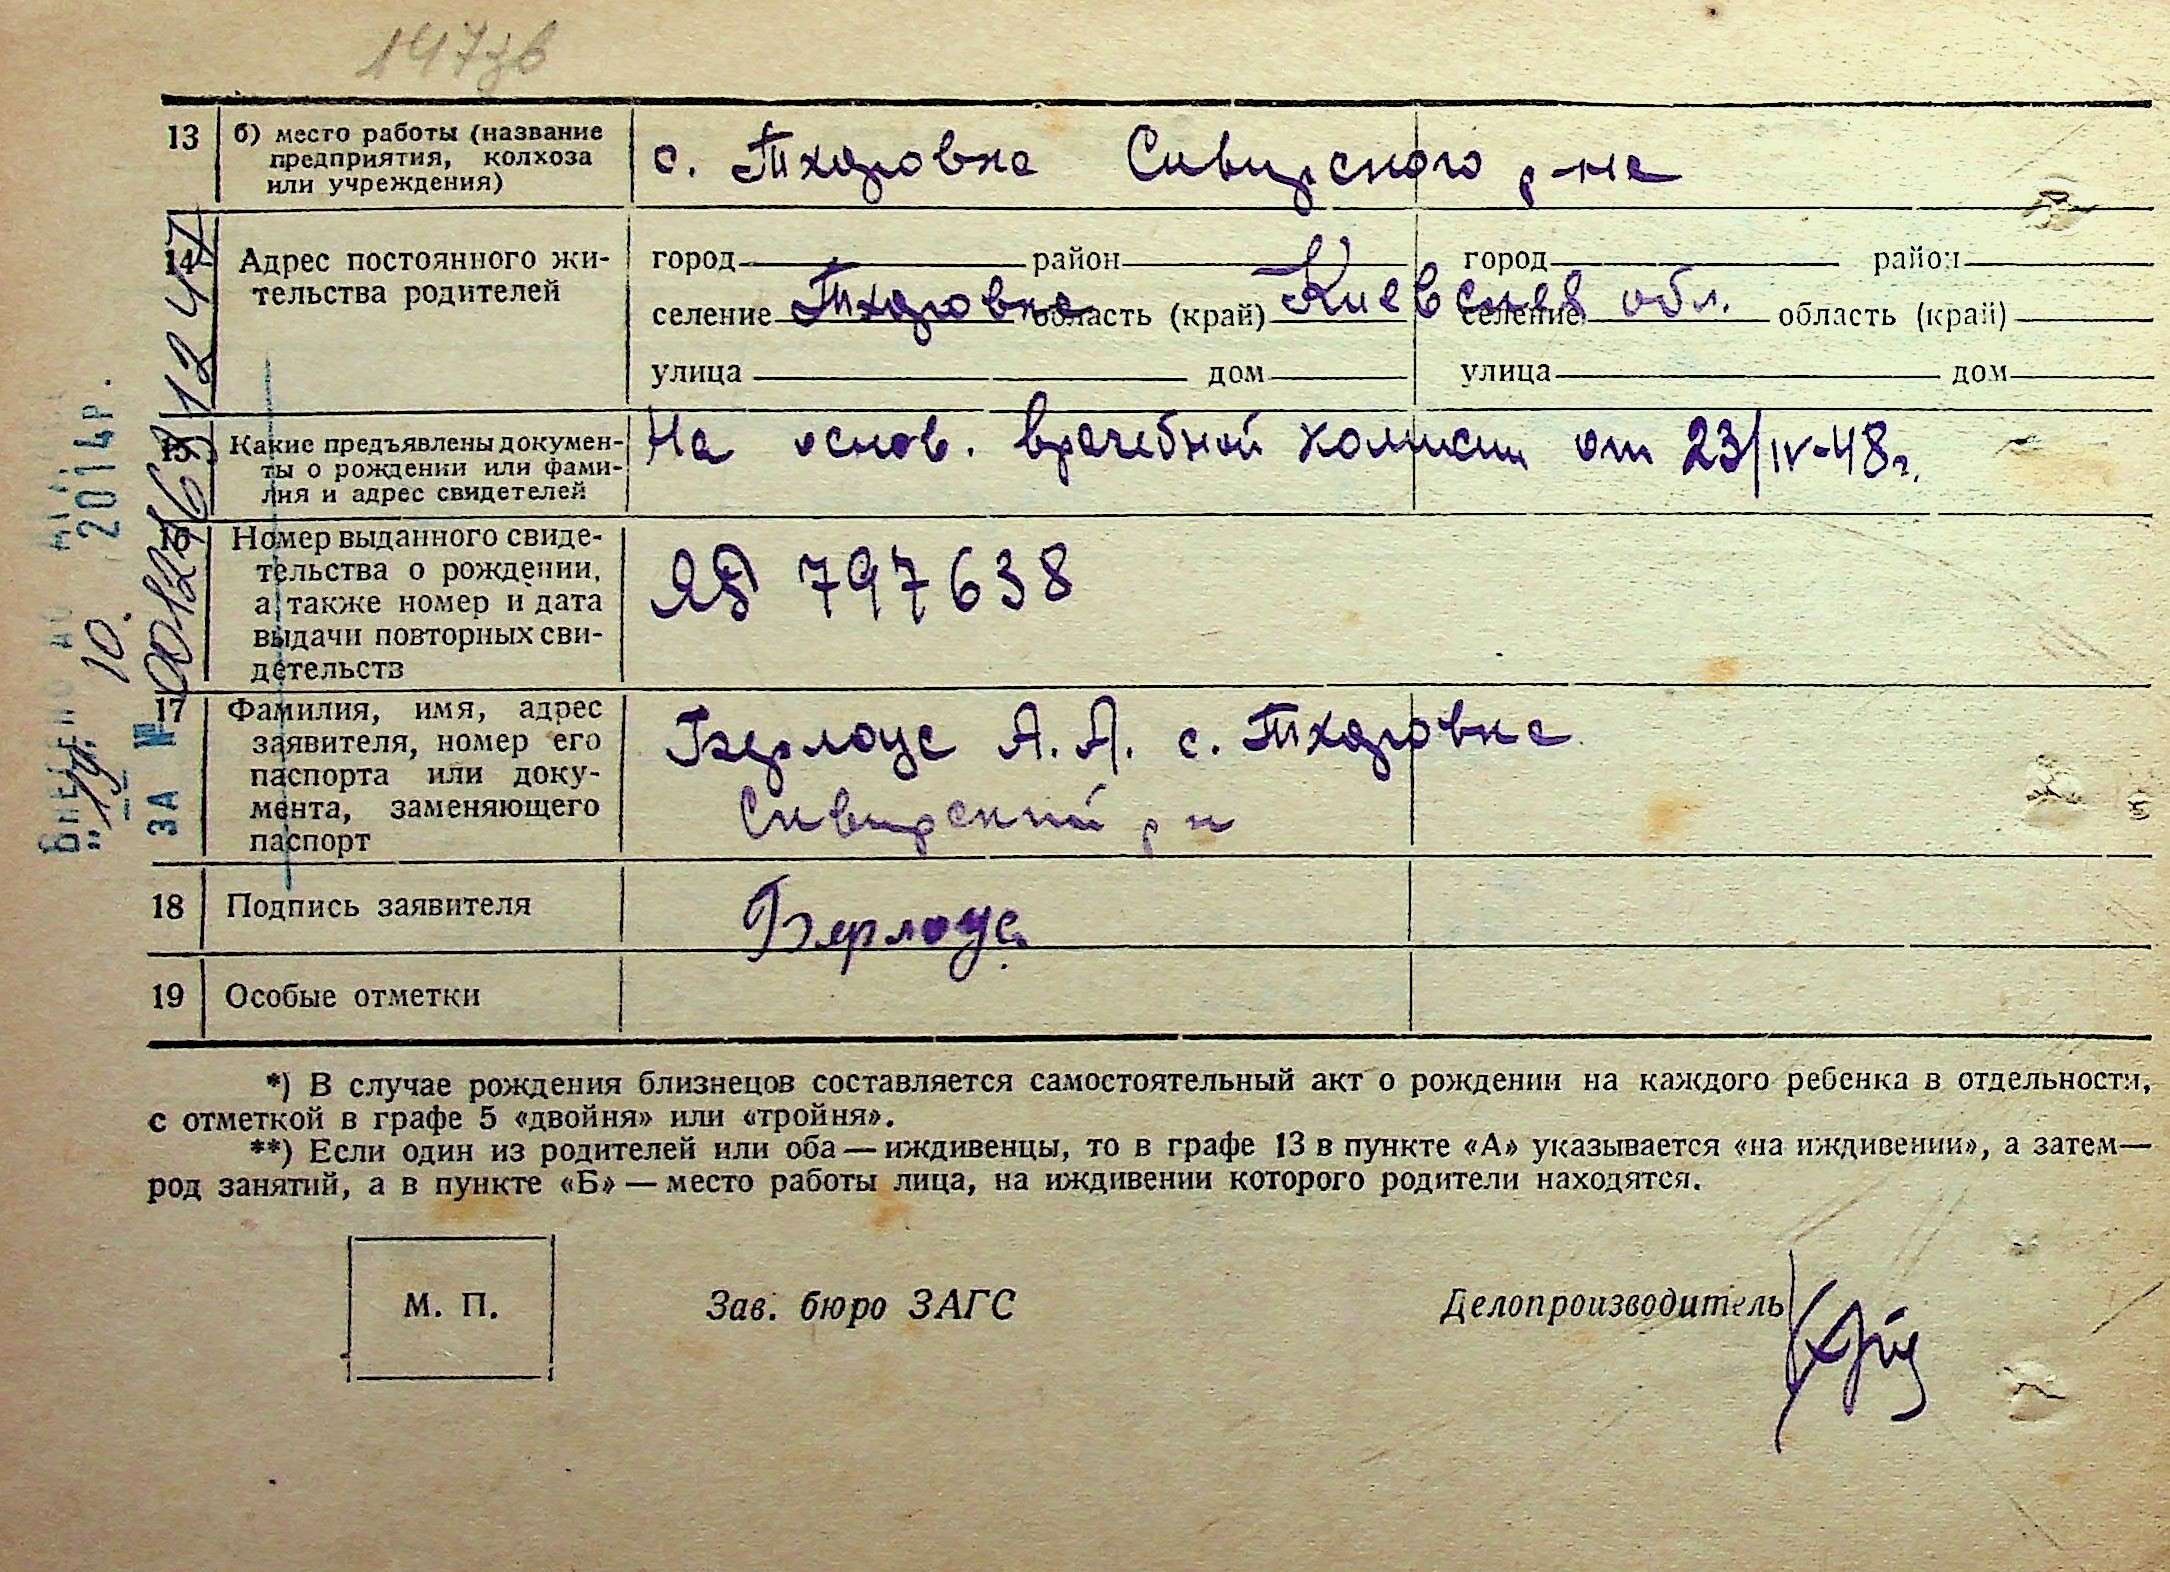 147зв
13 б) место работы (название
предприятия, колхоза
или учреждения)
с. Тхоровка Сквирского р-на
14 Адрес постоянного жи-
тельства родителей
город район город район
селение Тхоровка область (край) Киевская обл. селение область (край)
улица дом улица дом
15 Какие предъявлены докумен-
ты о рождении или фами-
лия и адрес свидетелей
На основ. врачебной комисии от 23/IV-48г.
16 Номер выданного свиде-
тельства о рождении,
а также номер и дата
выдачи повторных сви-
детельств
797638
17 Фамилия, имя, адрес
заявителя, номер его
паспорта или доку-
мента, заменяющего
паспорт
Берлоус А. А. с. Тхоровка
Сквирский р н
18 Подпись заявителя
Берлоус
19 Особые отметки
*) В случае рождения близнецов составляется самостоятельный акт о рождении на каждого ребенка в отдельности,
с отметкой в графе 5 «двойня» или «тройня».
**) Если один из родителей или оба — иждивенцы, то в графе 13 в пункте «А» указывается «на иждивении», а затем—
род занятий, а в пункте «Б» — место работы лица, на иждивении которого родители находятся.
М. П.
Зав. бюро ЗАГС
Делопроизводитель
"19" 10. 2014р.
ЗА №